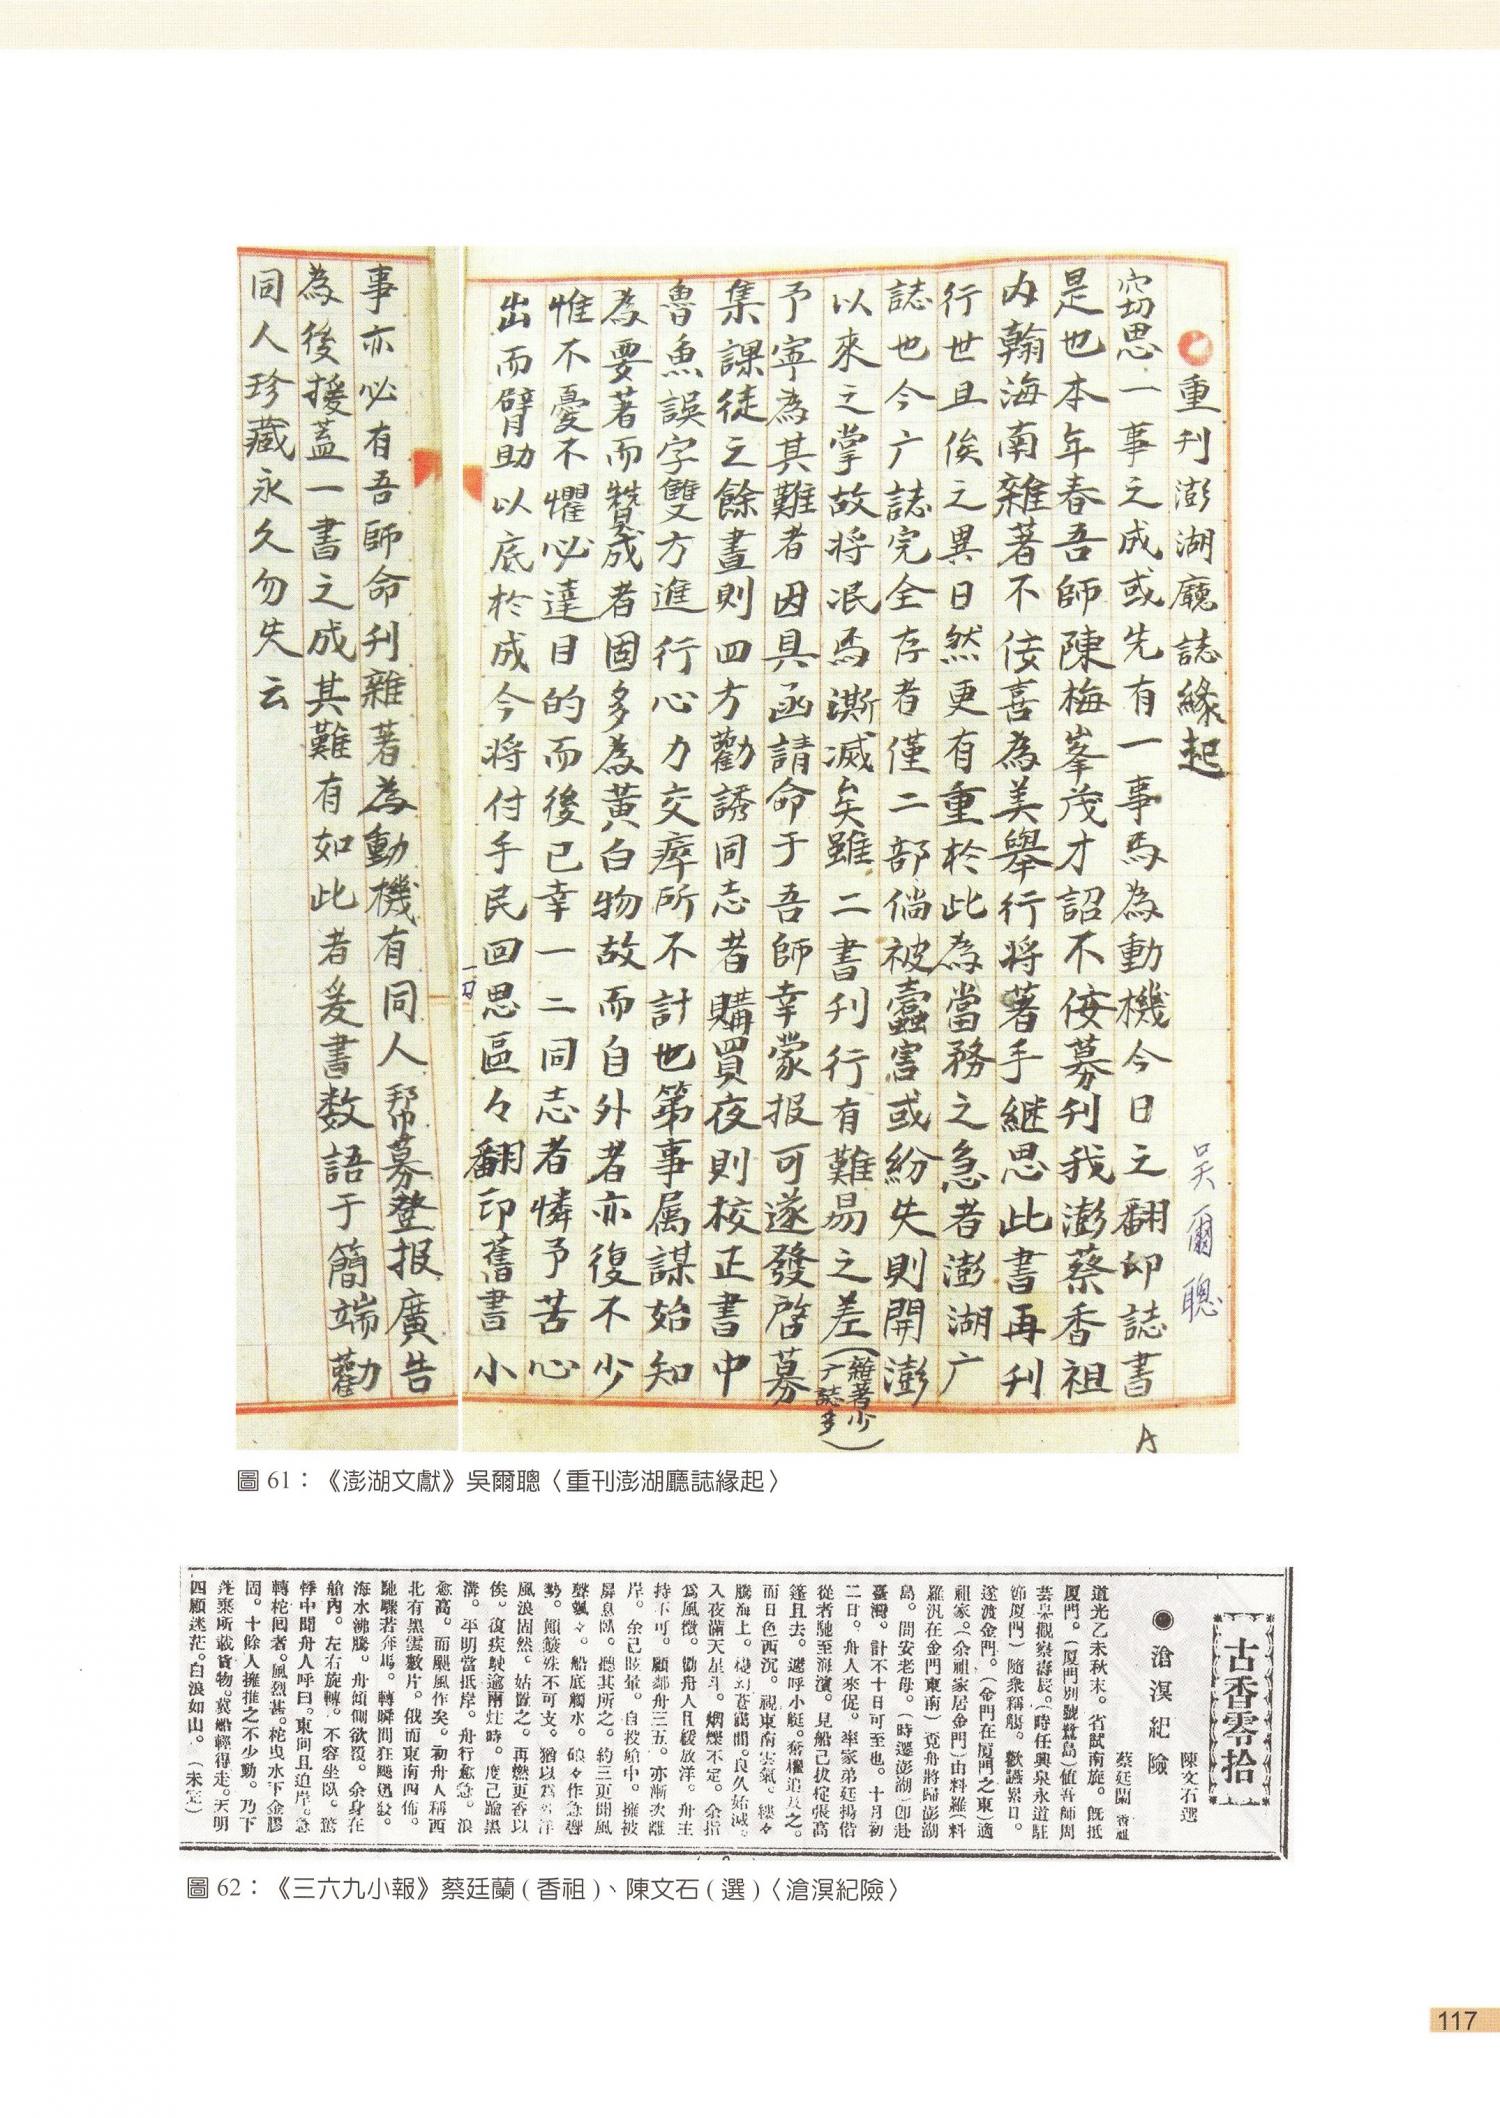 重刊澎湖廳誌緣起
吳爾聰
窃思一事之成或先有一事焉為動機今日之翻印誌書
是也本年春吾師陳梅峯茂才詔不佞募刊我澎蔡香祖
內翰海南雜著不佞喜為美舉行將著手継思此書再刊
行世且俟之異日然更有重於此為當務之急者澎湖广
誌也今广誌完全存者僅二部倘被蠹害或紛失則開澎
以來之掌故将泯焉澌滅矣雖二書刊行有難易之差(雜著少广誌多)
予寧為其難者因具函請命于吾師幸蒙报可遂發啓募
集課徒之餘晝則四方勸誘同志者購買夜則校正書中
魯魚誤字雙方進行心力交瘁所不計也第事属謀始知
為要著而贊成者固多為黃白物故而自外者亦復不少
惟不憂不懼必達目的而後已幸一二同志者憐予苦心
出而臂助以底於成今将付手民回思區々翻印舊書小
事亦必有吾師命刊雜著為動機有同人幇募登报廣告
為後援蓋一書之成其難有如此者爰書数語于簡端勸
同人珍藏永久勿失云
A
圖 61：《澎湖文獻》吳爾聰〈重刊澎湖廳誌緣起〉
古香零拾
陳文石選
●滄溟紀險
蔡廷蘭 香祖
道光乙未秋末。省試南旋。既抵
厦門。(厦門別號鷺島)值吾師周
芸皐觀察壽辰。(時任興泉永道駐
節厦門)隨衆稱觴。歡讌累日。
遂渡金門。(金門在厦門之東)適
祖家。(余祖家居金門)由料羅(料
羅汛在金門東南)覓舟將歸澎湖
島。問安老母。(時遷澎湖)卽赴
臺灣。計不十日可至也。十月初
二日。舟人來促。率家弟廷揚偕
從者馳至海濱。見船已拔椗張高
篷且去。遽呼小艇。奮櫂追及之。
而日色西沉。視東南雲氣。縷々
騰海上。變幻蒼藹間。良久始滅。
入夜滿天星斗。烱爍不定。余指
為風徵。勸舟人且緩放洋。舟主
持不可。顧鄰舟三五。亦漸次離
岸。余已眩暈。自投艙中。擁被
屏息臥。聽其所之。約三更聞風
聲颯々。船底觸水。硠々作急響
勢。顛簸殊不可支。猶以為外洋
風浪固然。姑置之。再燃更香以
俟。復疾駛逾兩炷時。度已踰黑
溝。平明當抵岸。舟行愈急。浪
愈高。而颶風作矣。初舟人稱西
北有黑雲數片。俄而東南四佈。
馳驟若奔馬。轉瞬間狂飇迅發。
海水沸騰。舟傾側欲覆。余身在
艙內。左右旋轉。不容坐臥。驚
悸中聞舟人呼曰。東向且迫岸。急
轉柁囘者。風烈甚。柁曳水下金膠
固。十餘人擁推之不少動。乃下
篷棄所載貨物。冀船輕得走。天明
四顧迷茫。白浪如山。(未完)
圖 62：《三六九小報》蔡廷蘭(香祖)、陳文石(選)〈滄溟紀險〉
117